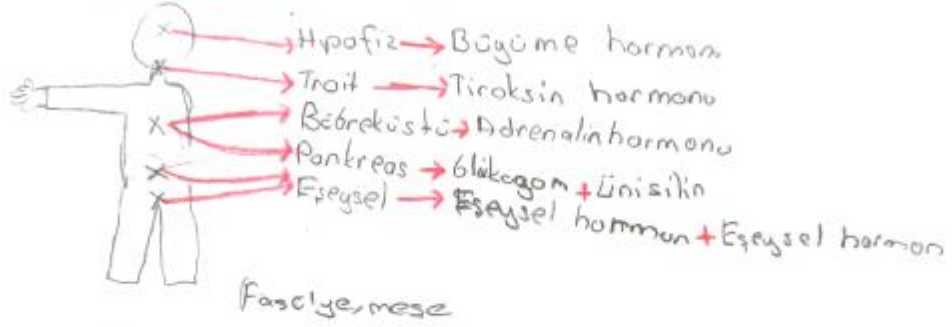 Hipofiz → Büyüme hormonu
Troit → Tiroksin hormonu
Böbreküstü → Adrenalin hormonu
Pankreas → Glukagom + Ünisilin
Eşeysel → Eşeysel hormon + Eşeysel hormon
Fasulye, meşe